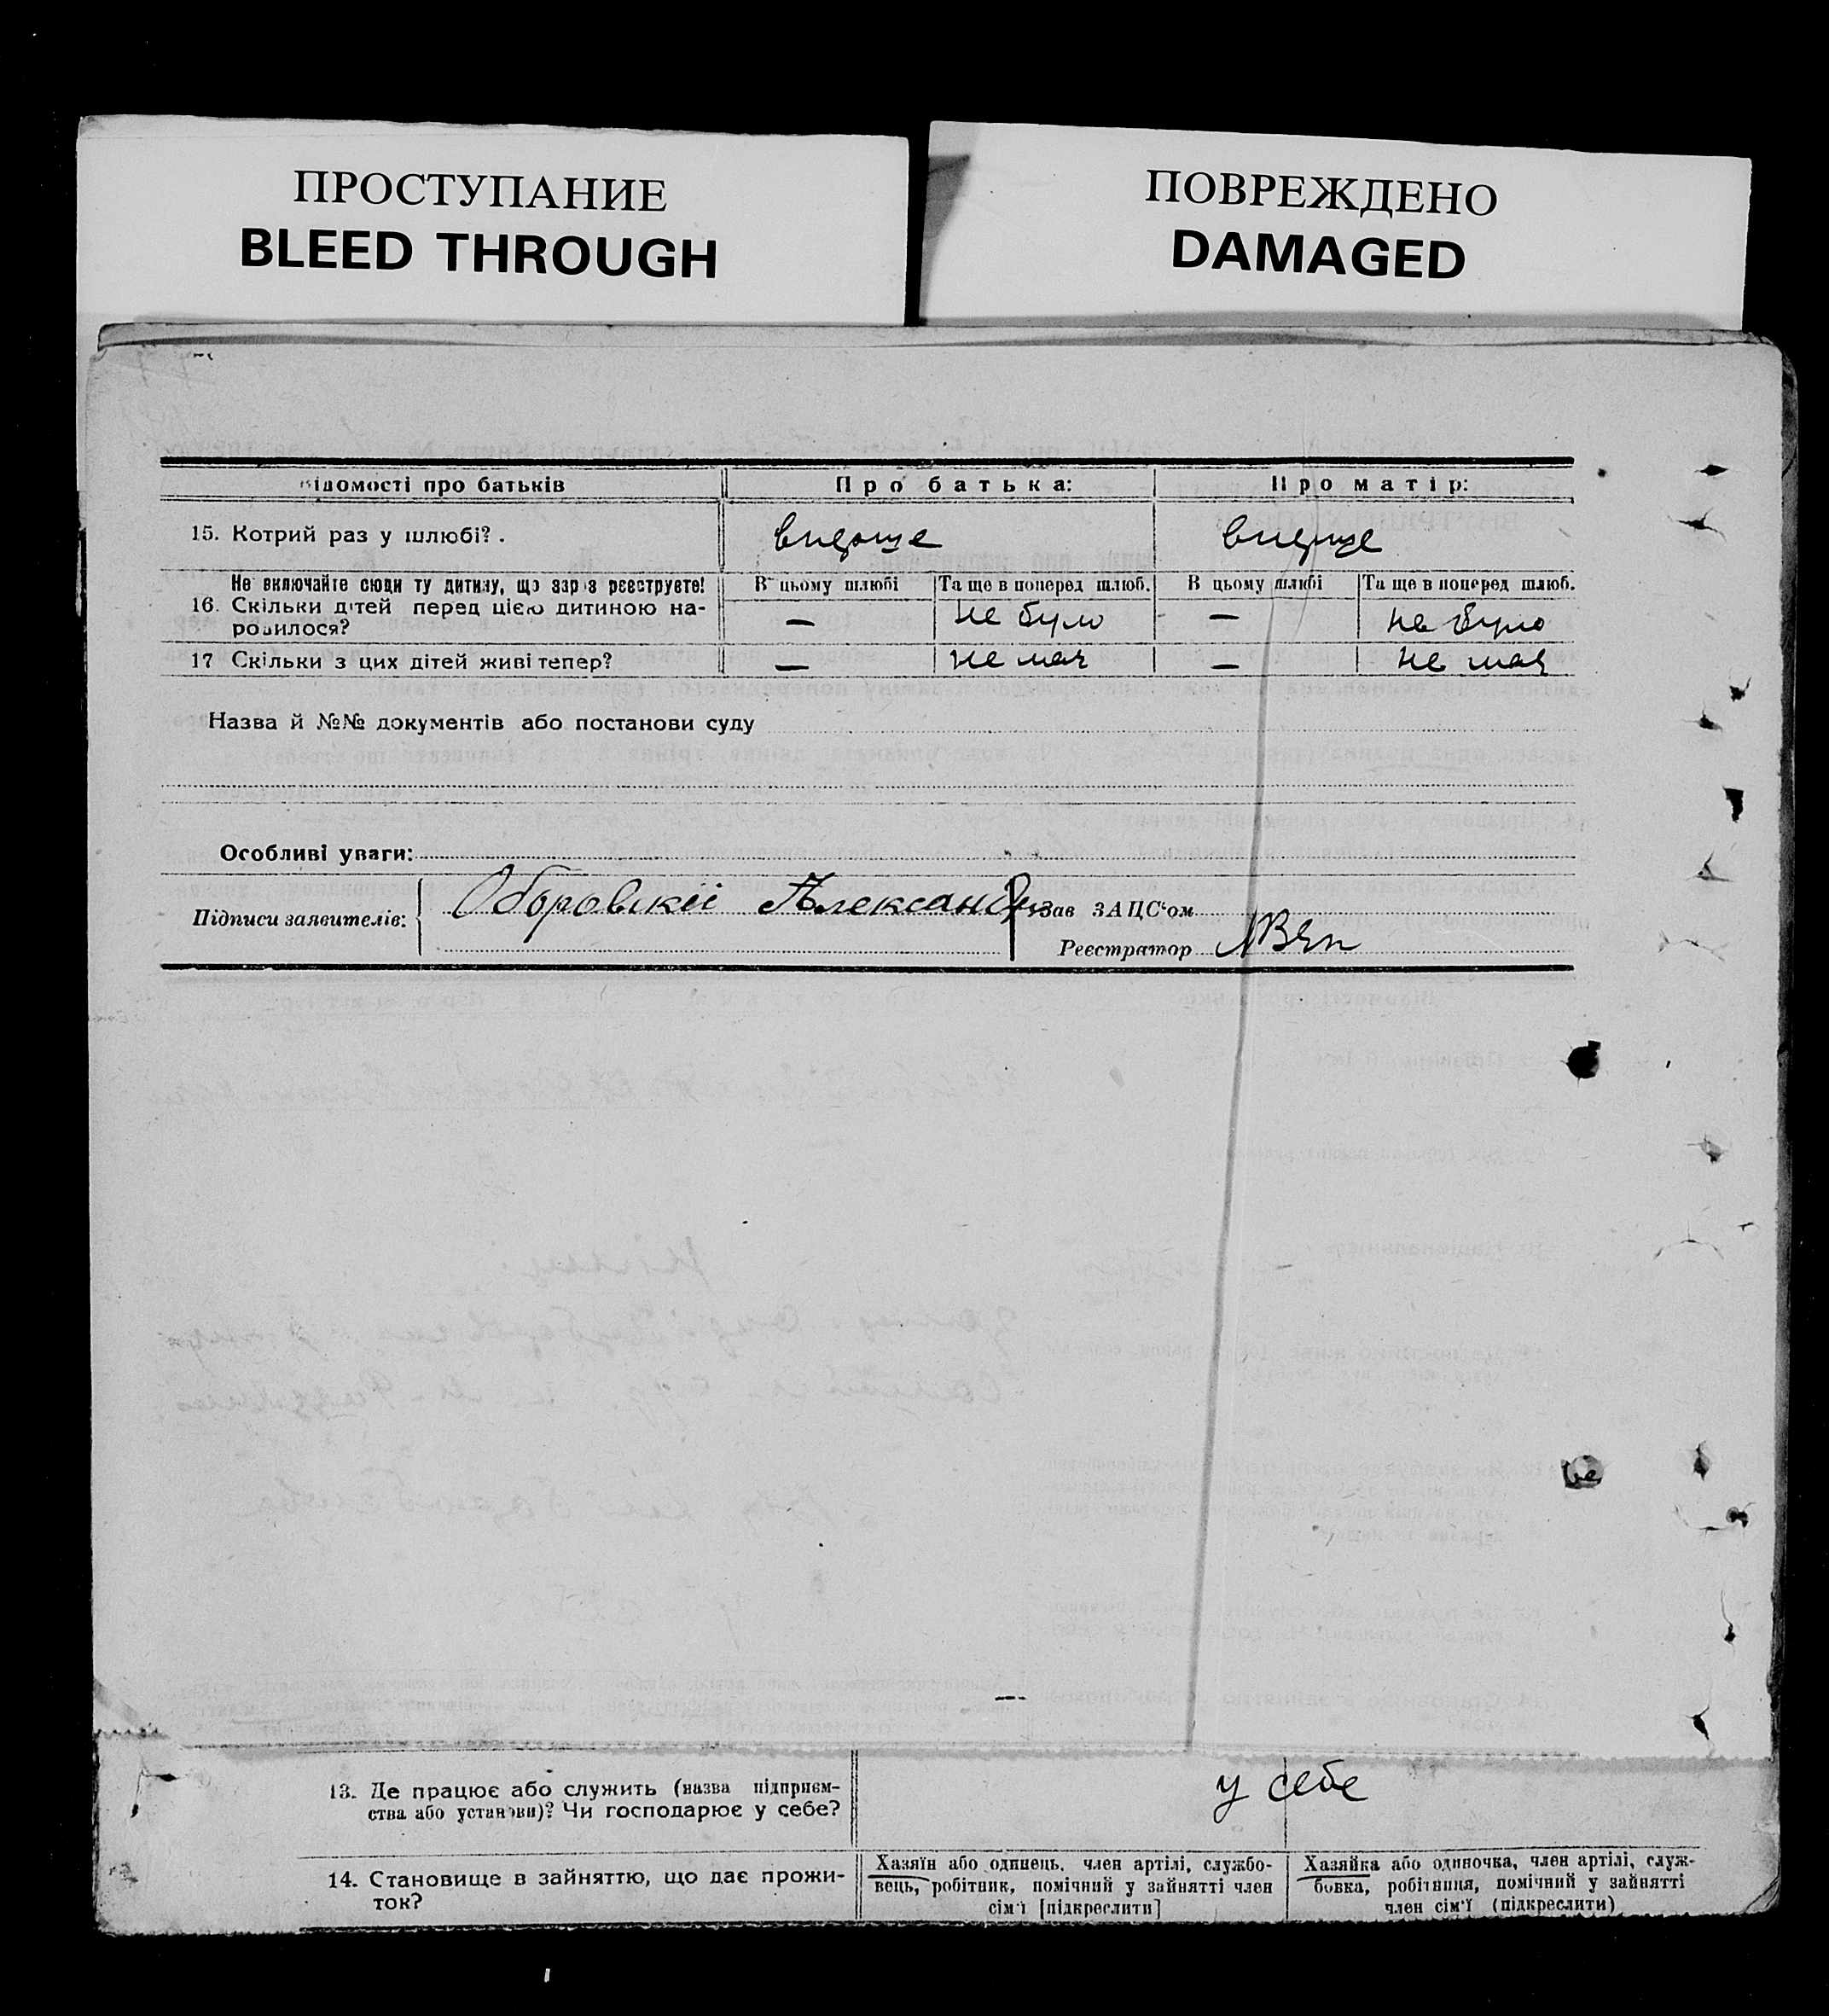 ПРОСТУПАНИЕ
BLEED THROUGH
ПОВРЕЖДЕНО
DAMAGED
Відомості про батьків Про батька: Про матір:
15. Котрий раз у шлюбі? . вперше вперше
Не включайте сюди ту дитину, що зараз реєструєте! В цьому шлюбі Та ще в поперед шлюб. В цьому шлюбі Та ще в поперед шлюб.
16. Скільки дітей перед цією дитиною на-
родилося? — не було — не було
17 Скільки з цих дітей живі тепер? — не має — не має
Назва й №№ документів або постанови суду
Особливі уваги:
Підписи заявителів: Александр Зав ЗАЦС'ом
Реєстратор
13. Де працює або служить (назва підприєм-
ства або установи)? Чи господарює у себе? у себе
14. Становище в зайняттю, що дає прожи-
ток?
Хазяїн або одинець, член артілі, службо-
вець, робітник, помічний у зайнятті член
сім'ї [підкреслити]
Хазяйка або одиночка, член артілі, служ-
бовка, робітниця, помічний у зайнятті
член сім'ї (підкреслити)